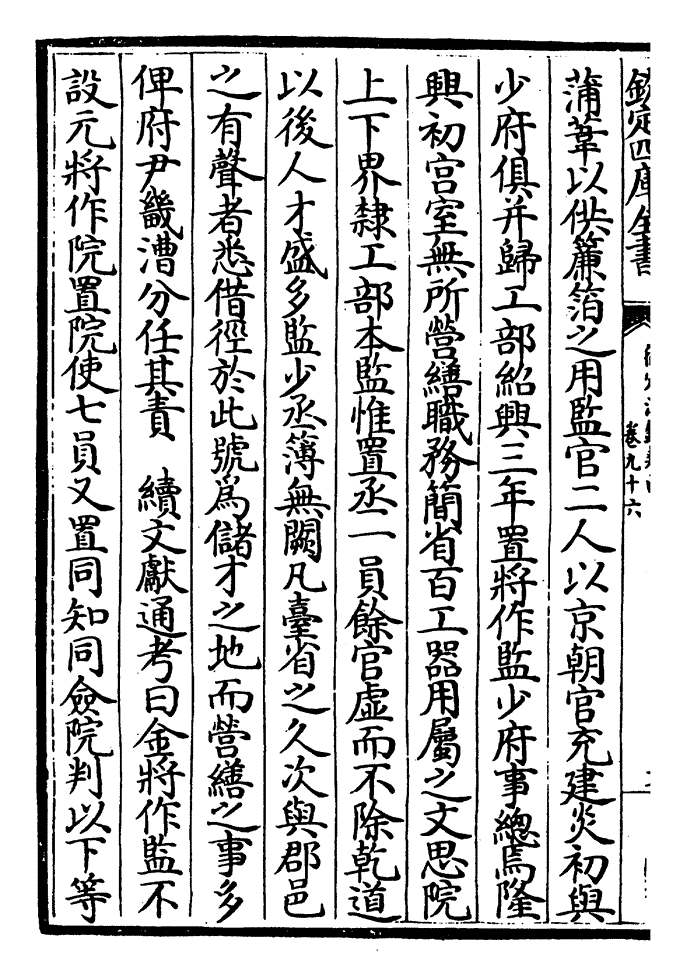 欽定四庫全書
卷九十六
蒲葦以供簾箔之用監官二人以京朝官充建炎初與
少府俱并歸工部紹興三年置將作監少府事總焉隆
興初宫室無所營繕職務簡省百工器用屬之文思院
上下界隸工部本監惟置丞一員餘官虚而不除乾道
以後人才盛多監少丞簿無闕凡臺省之久次與郡邑
之有聲者悉借徑於此號為儲才之地而營繕之事多
俾府尹畿漕分任其責　續文獻通考曰金將作監不
設元將作院置院使七員又置同知同僉院判以下等